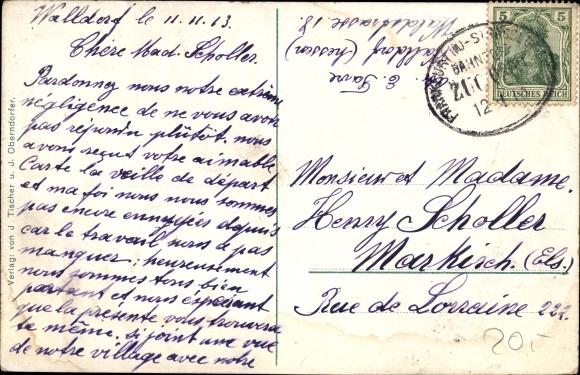 Walldorf le 11.11.13.
Chère Mad. Scholler.
Pardonnez nous notre extrême
négligence de ne vous avoir
pas répondu plûtôt. nous
avons reçut votre aimable
Carte la veille de départ
et ma foi nous nous sommes
pas encore ennuyées depuis
car le travail nous a pas
manquer; heureusement
nous sommes tous bien
portant et nous esperont
que la présente vous trouvera
te même. si joint une vue
de notre village avec notre
Verlag: von J. Tischer u. J. Oberndorfer.
Walldorf (Hessen)
5 5
DEUTSCHES REICH
BAHNPOST
ZUG
12
Monsieur et Madame.
Henry Scholler
Markirch. (Els.)
Rue de Lorraine 227.
20,-